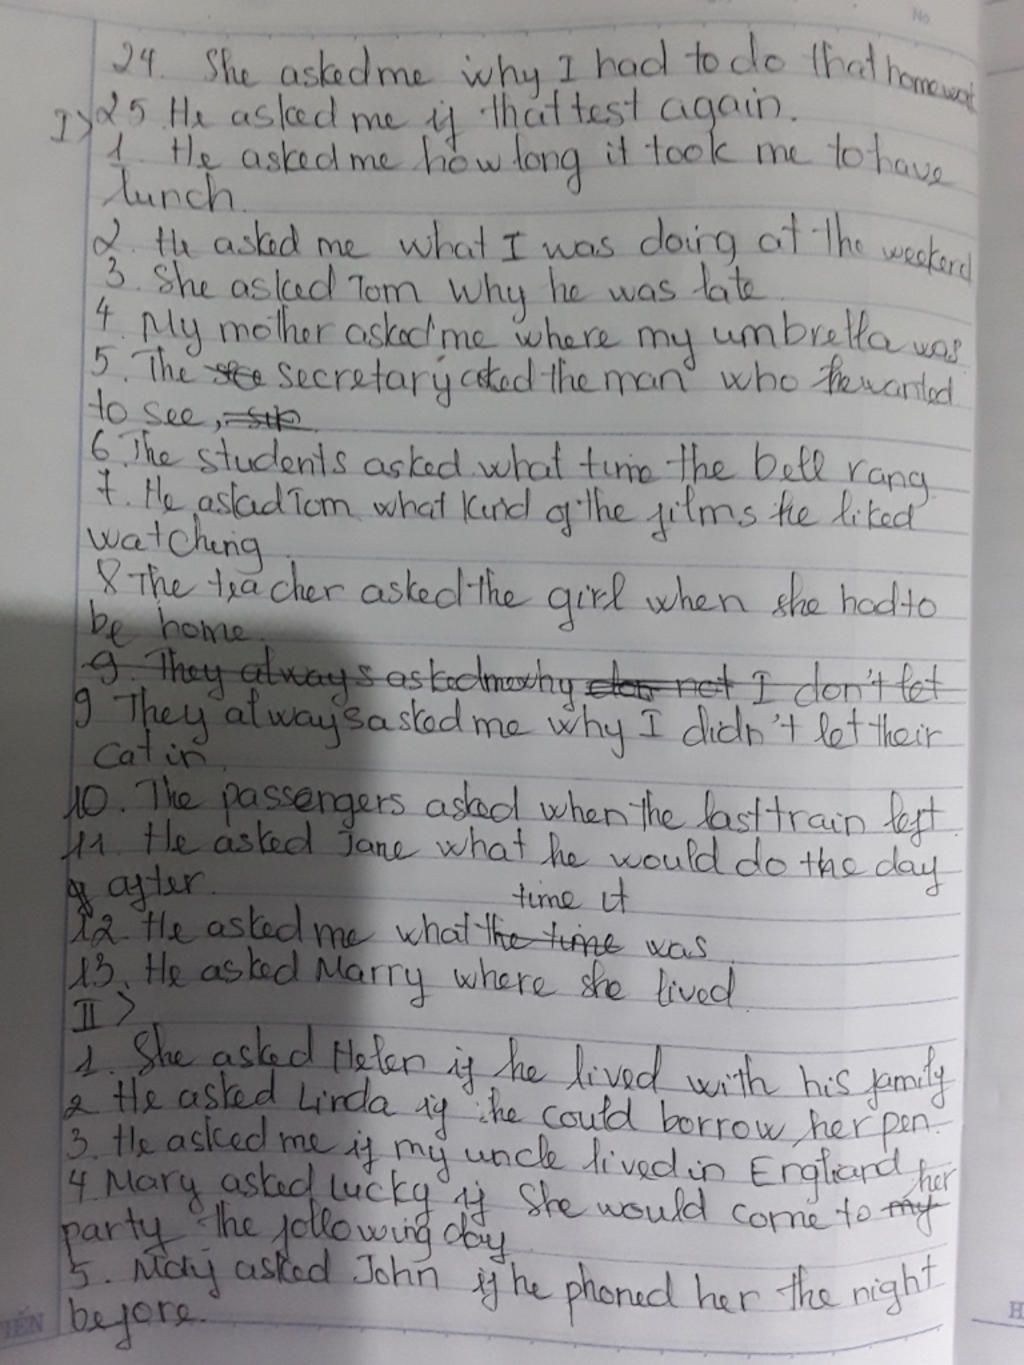 No
24. She asked me why I had to do that homework
25. He asked me if that test again.
I> 1. He asked me how long it took me to have
lunch.
2. He asked me what I was doing at the weekend
3. She asked Tom why he was late.
4. My mother asked me where my umbrella was
5. The see secretary asked the man who he wanted
to see,
6. The students asked what time the bell rang.
7. He asked Tom what kind of the films he liked
watching.
8 The teacher asked the girl when she had to
be home.
9. They always asked me why does not I don't let
9 They always asked me why I didn't let their
cat in.
10. The passengers asked when the last train left.
11. He asked Jane what he would do the day
after.
time it
12. He asked me what the time was.
13. He asked Marry where she lived
II>
1. She asked Helen if he lived with his family
2 He asked Linda if he could borrow her pen.
3. He asked me if my uncle lived in England
her
4 Mary asked Lucky if she would come to my
party the following day
5. asked John if he phoned her the night
before.